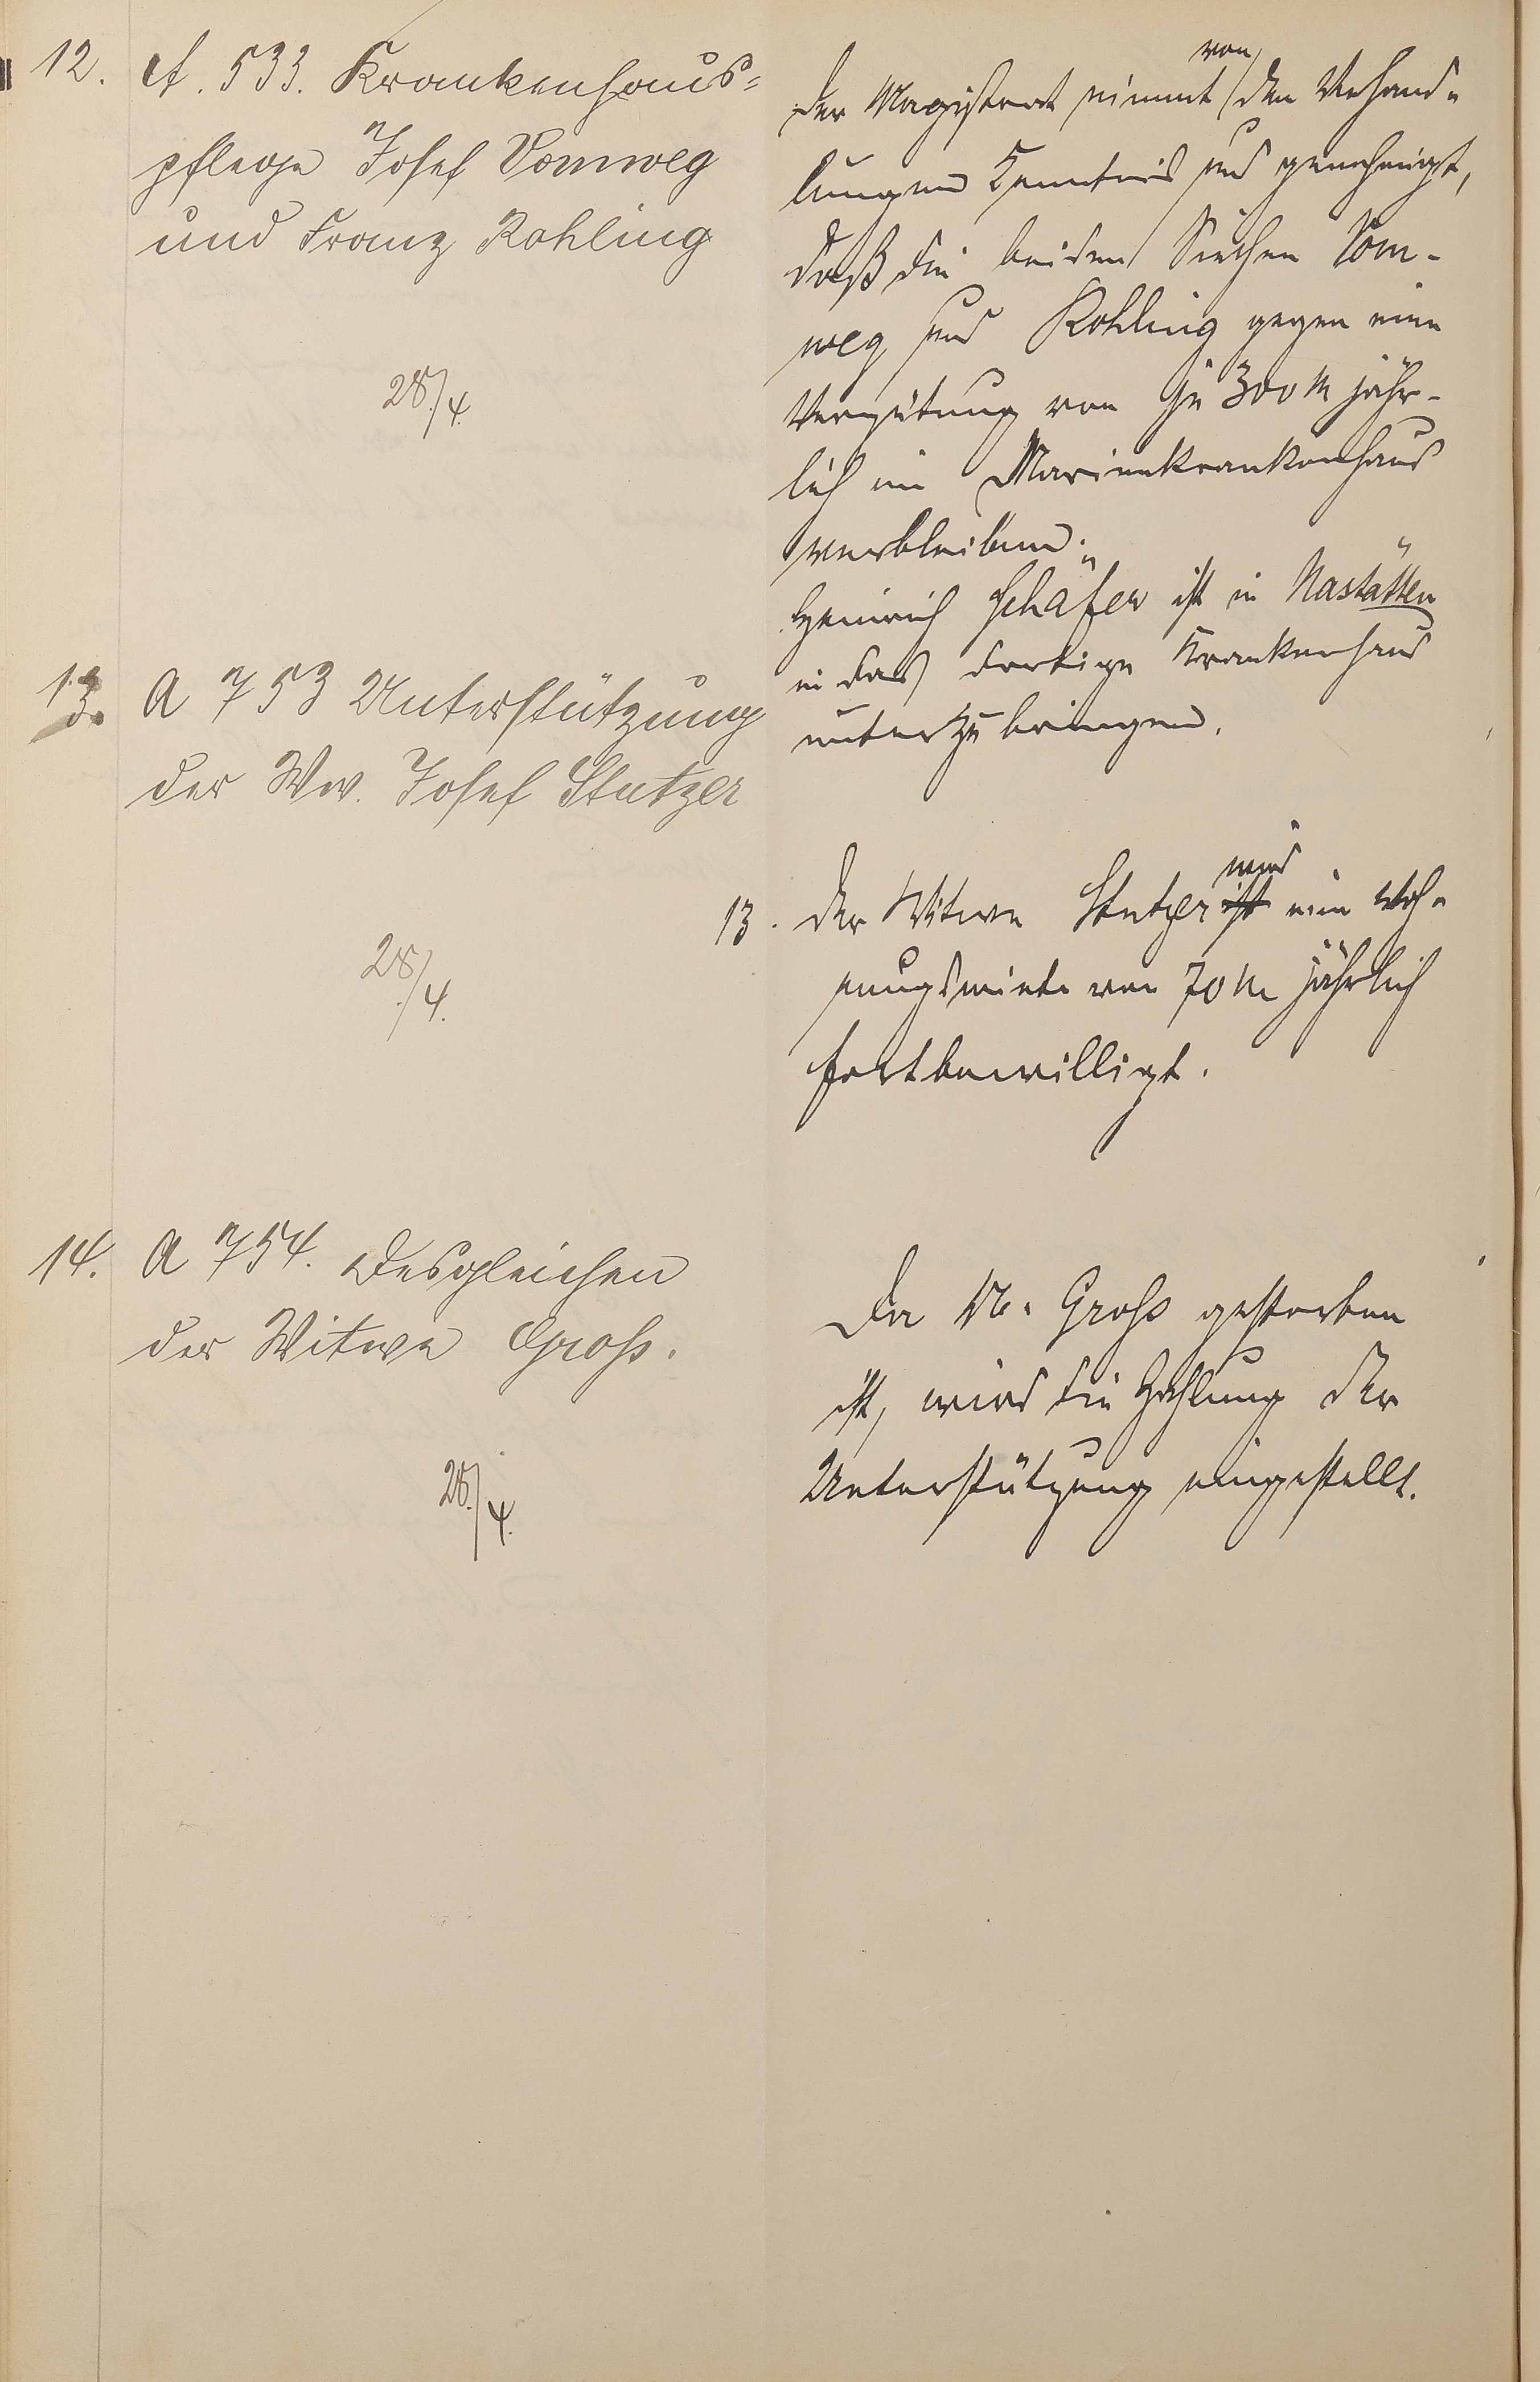 12. A. 533. Krankenhaus-
pflege Josef Vomweg
und Franz Rohling
28./4.
von
Der Magistrat nimmt den Verhand-
lungen Kenntnis und genehmigt,
daß die beiden Siechen Vom-
weg und Rohling gegen eine
Vergütung von je 300 M jähr-
lich im Marienkrankenhaus
verbleiben.
Heinrich Schäfer ist in Nastätten
in das dortige Krankenhaus
unterzubringen.
13. A 753 Unterstützung
der Ww. Josef Stutzer
28./4.
wird
13. Der Witwe Stutzer ist eine Woh-
nungsmiete von 70 M jährlich
fortbewilligt.
14. A 754. Desgleichen
der Witwe Groß.
28./4.
Da W. Groß gestorben
ist, wird die Zahlung der
Unterstützung eingestellt.